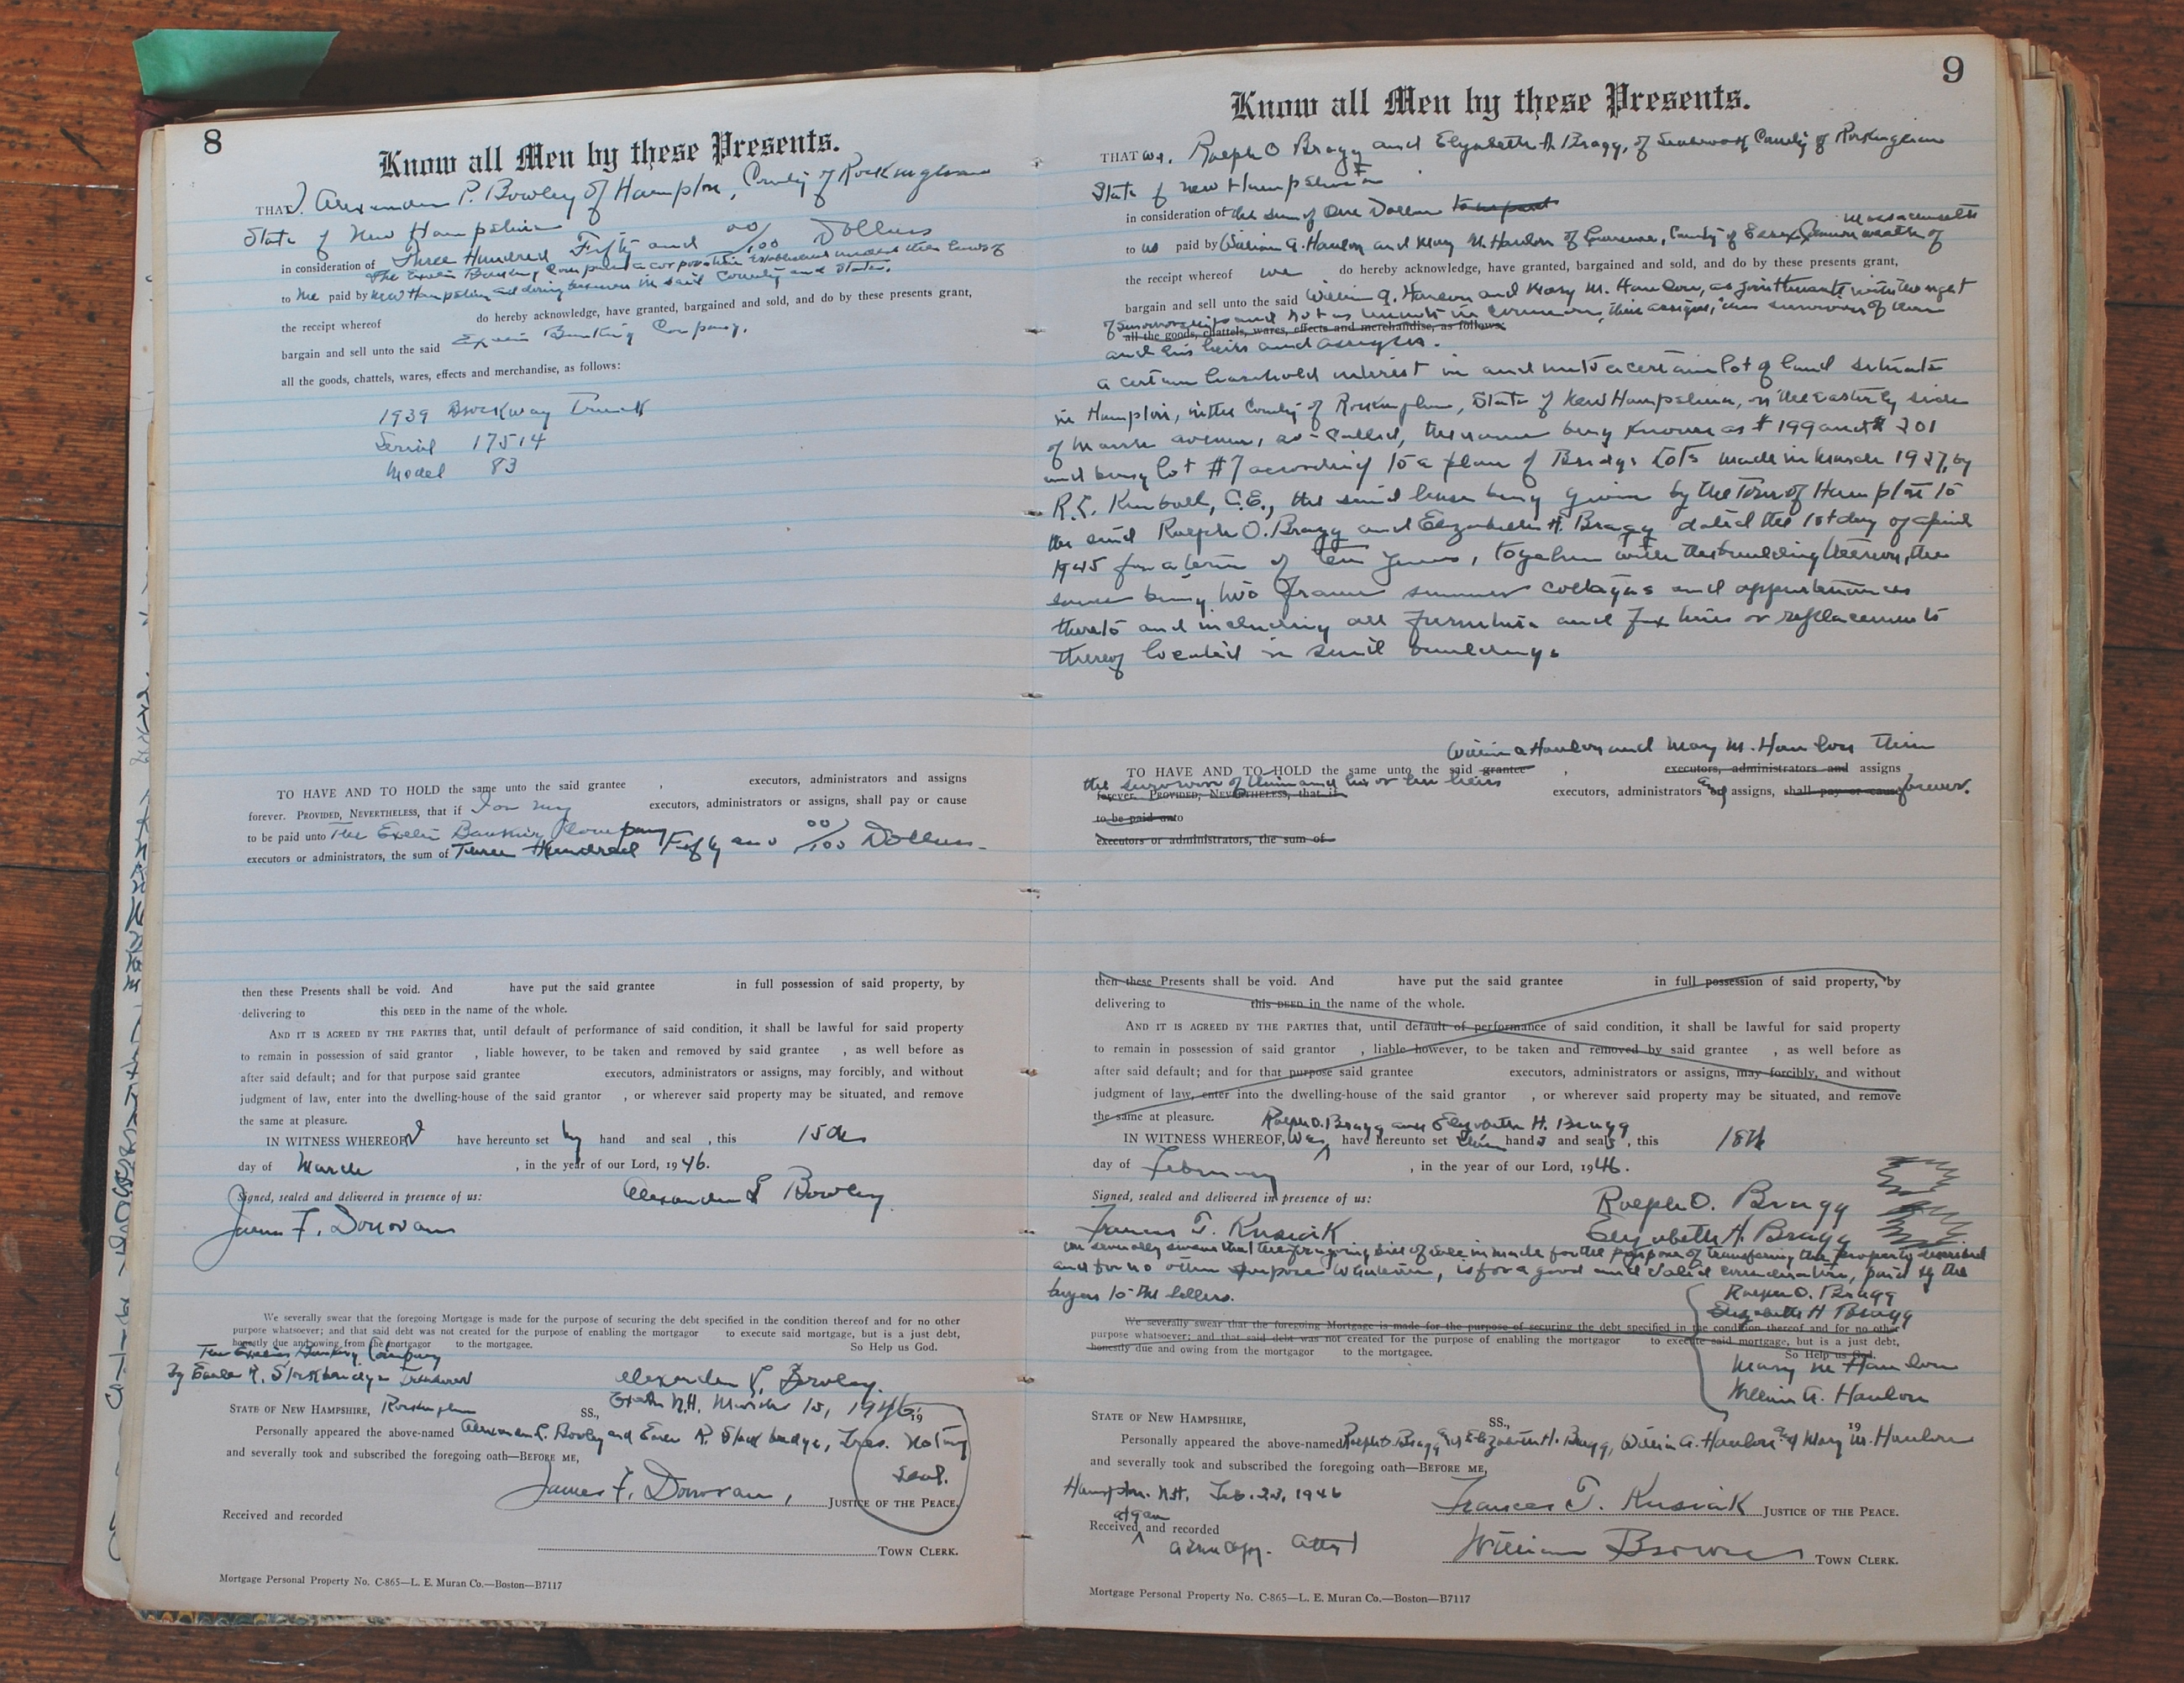 8
Know all Men by these Presents.
THAT I, Alexander P. Bowley of Hampton, County of Rockingham
State of New Hampshire
in consideration of Three Hundred Fifty and 00/100 Dollars
The Exeter Banking Company a corporation established under the laws of
to me paid by New Hampshire and doing business in said County and State.
the receipt whereof do hereby acknowledge, have granted, bargained and sold, and do by these presents grant,
bargain and sell unto the said Exeter Banking Company,
all the goods, chattels, wares, effects and merchandise, as follows:
1939 Brockway Truck
Serial 17514
Model 83
TO HAVE AND TO HOLD the same unto the said grantee , executors, administrators and assigns
forever. PROVIDED, NEVERTHELESS, that if I or my executors, administrators or assigns, shall pay or cause
to be paid unto The Exeter Banking Company
executors or administrators, the sum of Three Hundred Fifty and 00/100 Dollars
then these Presents shall be void. And have put the said grantee in full possession of said property, by
delivering to this DEED in the name of the whole.
AND IT IS AGREED BY THE PARTIES that, until default of performance of said condition, it shall be lawful for said property
to remain in possession of said grantor , liable however, to be taken and removed by said grantee , as well before as
after said default; and for that purpose said grantee executors, administrators or assigns, may forcibly, and without
judgment of law, enter into the dwelling-house of the said grantor , or wherever said property may be situated, and remove
the same at pleasure.
IN WITNESS WHEREOF I have hereunto set my hand and seal , this 15th
day of March , in the year of our Lord, 1946.
Signed, sealed and delivered in presence of us: Alexander L Bowley
James F. Donovan
We severally swear that the foregoing Mortgage is made for the purpose of securing the debt specified in the condition thereof and for no other
purpose whatsoever; and that said debt was not created for the purpose of enabling the mortgagor to execute said mortgage, but is a just debt,
honestly due and owing from the mortgagor to the mortgagee. So Help us God.
The Exeter Banking Company
By Earle R. Stockbridge Treasurer Alexander L. Bowley.
Exeter N.H. March 15, 1946
STATE OF NEW HAMPSHIRE, Rockingham SS., 19
Personally appeared the above-named Alexander L. Bowley and Earle R. Stockbridge, Tres. Notary
and severally took and subscribed the foregoing oath—BEFORE ME, Seal.
James F. Donovan, JUSTICE OF THE PEACE.
Received and recorded
TOWN CLERK.
Mortgage Personal Property No. C-865—L. E. Muran Co.—Boston—B7117
9
Know all Men by these Presents.
THAT we, Ralph O Bragg and Elizabeth H Bragg, of Seabrook County of Rockingham
State of New Hampshire
in consideration of the sum of One Dollar to us paid
Massachusetts
to us paid by William A. Hanlon and Mary M. Hanlon of Lawrence, County of Essex, Commonwealth of
the receipt whereof we do hereby acknowledge, have granted, bargained and sold, and do by these presents grant,
bargain and sell unto the said William A. Hanlon and Mary M. Hanlon, as joint tenants with the right
of survivorship and not as tenants in common, their assigns, the survivor of them
all the goods, chattels, wares, effects and merchandise, as follows:
and his heirs and assigns.
a certain leasehold interest in and unto a certain lot of land situate
in Hampton, in the County of Rockingham, State of New Hampshire, on the easterly side
of Manse avenue, so-called, the same being known as # 199 and # 201
and being lot #7 according to a plan of Bridge Lots made in March 1927, by
R.E. Kimball, C.E., the said lease being given by the Town of Hampton to
the said Ralph O. Bragg and Elizabeth H. Bragg dated the 1st day of April
1945 for a term of ten years, together with the building thereon, the
same being two frame summer cottages and appurtenances
thereto and including all furniture and fixtures or replacements
thereof located in said buildings
William A Hanlon and Mary M. Hanlon their
TO HAVE AND TO HOLD the same unto the said grantee , executors, administrators and assigns
the survivor of them and his or her heirs
forever. PROVIDED, NEVERTHELESS, that if executors, administrators and assigns, shall pay or cause forever.
to be paid unto
executors or administrators, the sum of
then these Presents shall be void. And have put the said grantee in full possession of said property, by
delivering to this DEED in the name of the whole.
AND IT IS AGREED BY THE PARTIES that, until default of performance of said condition, it shall be lawful for said property
to remain in possession of said grantor , liable however, to be taken and removed by said grantee , as well before as
after said default; and for that purpose said grantee executors, administrators or assigns, may forcibly, and without
judgment of law, enter into the dwelling-house of the said grantor , or wherever said property may be situated, and remove
the same at pleasure. Ralph O. Bragg and Elizabeth H. Bragg
IN WITNESS WHEREOF, We, have hereunto set their hands and seals , this 18th
day of February , in the year of our Lord, 1946.
Signed, sealed and delivered in presence of us: Ralph O. Bragg
Frances T. Kusiak Elizabeth H. Bragg
We severally swear that the foregoing bill of sale is made for the purpose of transferring the property described
and for no other purpose whatever, is for a good and valid consideration, paid by the
buyers to the sellers.
Ralph O. Bragg
Elizabeth H Bragg
We severally swear that the foregoing Mortgage is made for the purpose of securing the debt specified in the condition thereof and for no other
purpose whatsoever; and that said debt was not created for the purpose of enabling the mortgagor to execute said mortgage, but is a just debt,
honestly due and owing from the mortgagor to the mortgagee. So Help us God.
Mary M Hanlon
William A. Hanlon
STATE OF NEW HAMPSHIRE, SS., 19
Personally appeared the above-named Ralph O. Bragg and Elizabeth H. Bragg, William A. Hanlon and Mary M. Hanlon
and severally took and subscribed the foregoing oath—BEFORE ME,
Hampton. N.H. Feb. 23, 1946 Frances T. Kusiak JUSTICE OF THE PEACE.
Received and recorded
A true copy. Attest William Brown TOWN CLERK.
Mortgage Personal Property No. C-865—L. E. Muran Co.—Boston—B7117